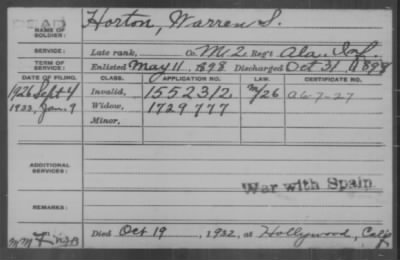 DEAD
NAME OF SOLDIER: Horton, Warren S.
SERVICE: Late rank, Co. M 2 Reg't Ala. Inf
TERM OF SERVICE: Enlisted May 11, 1898 Discharged Oct 31, 1898
DATE OF FILING. CLASS. APPLICATION NO. LAW. CERTIFICATE NO.
1926 Sept 4 Invalid, 1552312 m/26 a 6-7-27
1933, Jan. 9 Widow, 1729777
Minor,
ADDITIONAL SERVICES:
War with Spain
REMARKS:
Died Oct 19, 1932, at Hollywood, Calif